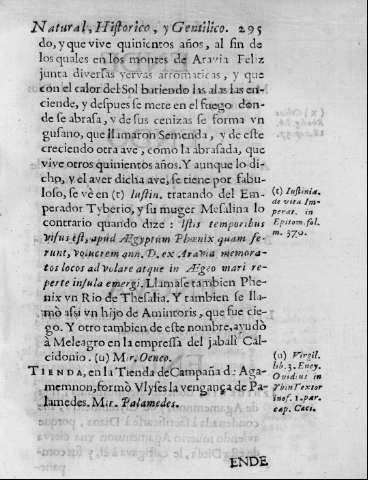 Natural, Historico, y Gentilico. 295
do, y que vive quinientos años, al fin de
los quales en los montes de Aravia Feliz
junta diversas yervas arromaticas, y que
con el calor del Sol batiendo las alas las en-
ciende, y despues se mete en el fuego don-
de se abrasa, y de sus cenizas se forma vn
gusano, que llamaron Semenda, y de este
creciendo otra ave, como la abrasada, que
vive otros quinientos años. Y aunque lo di-
cho, y el aver dicha ave, se tiene por fabu-
loso, se vè en (t) Iustin. tratando del Em-
perador Tyberio, y su muger Mesalina lo
contrario quando dize: Istis temporibus
visus est, apud Ægyptum Phœnix quam fe-
runt, volucrem ann. D. ex Aravia memora-
tos locos advolare atque in Ægeo mari re-
perte insula emergi. Llamase tambien Phe-
nix vn Rio de Thesalia. Y tambien se lla-
mò assi vn hijo de Amintoris, que fue cie-
go. Y otro tambien de este nombre, ayudò
à Meleagro en la empressa del jabalì Cal-
cidonio. (u) Mir. Oeneo.
TIENDA, en la Tienda de Campaña de Aga-
memnon, formò Vlyses la vengança de Pa-
lamedes. Mir. Palamedes.
(t) Iustinia.
de vita Im-
perat. in
Epitom. fol.
m. 370.
(u) Virgil.
lib. 3. Eney.
Ovidius in
Ybin Textor
inof. 1. par.
cap. Caci.
ENDE